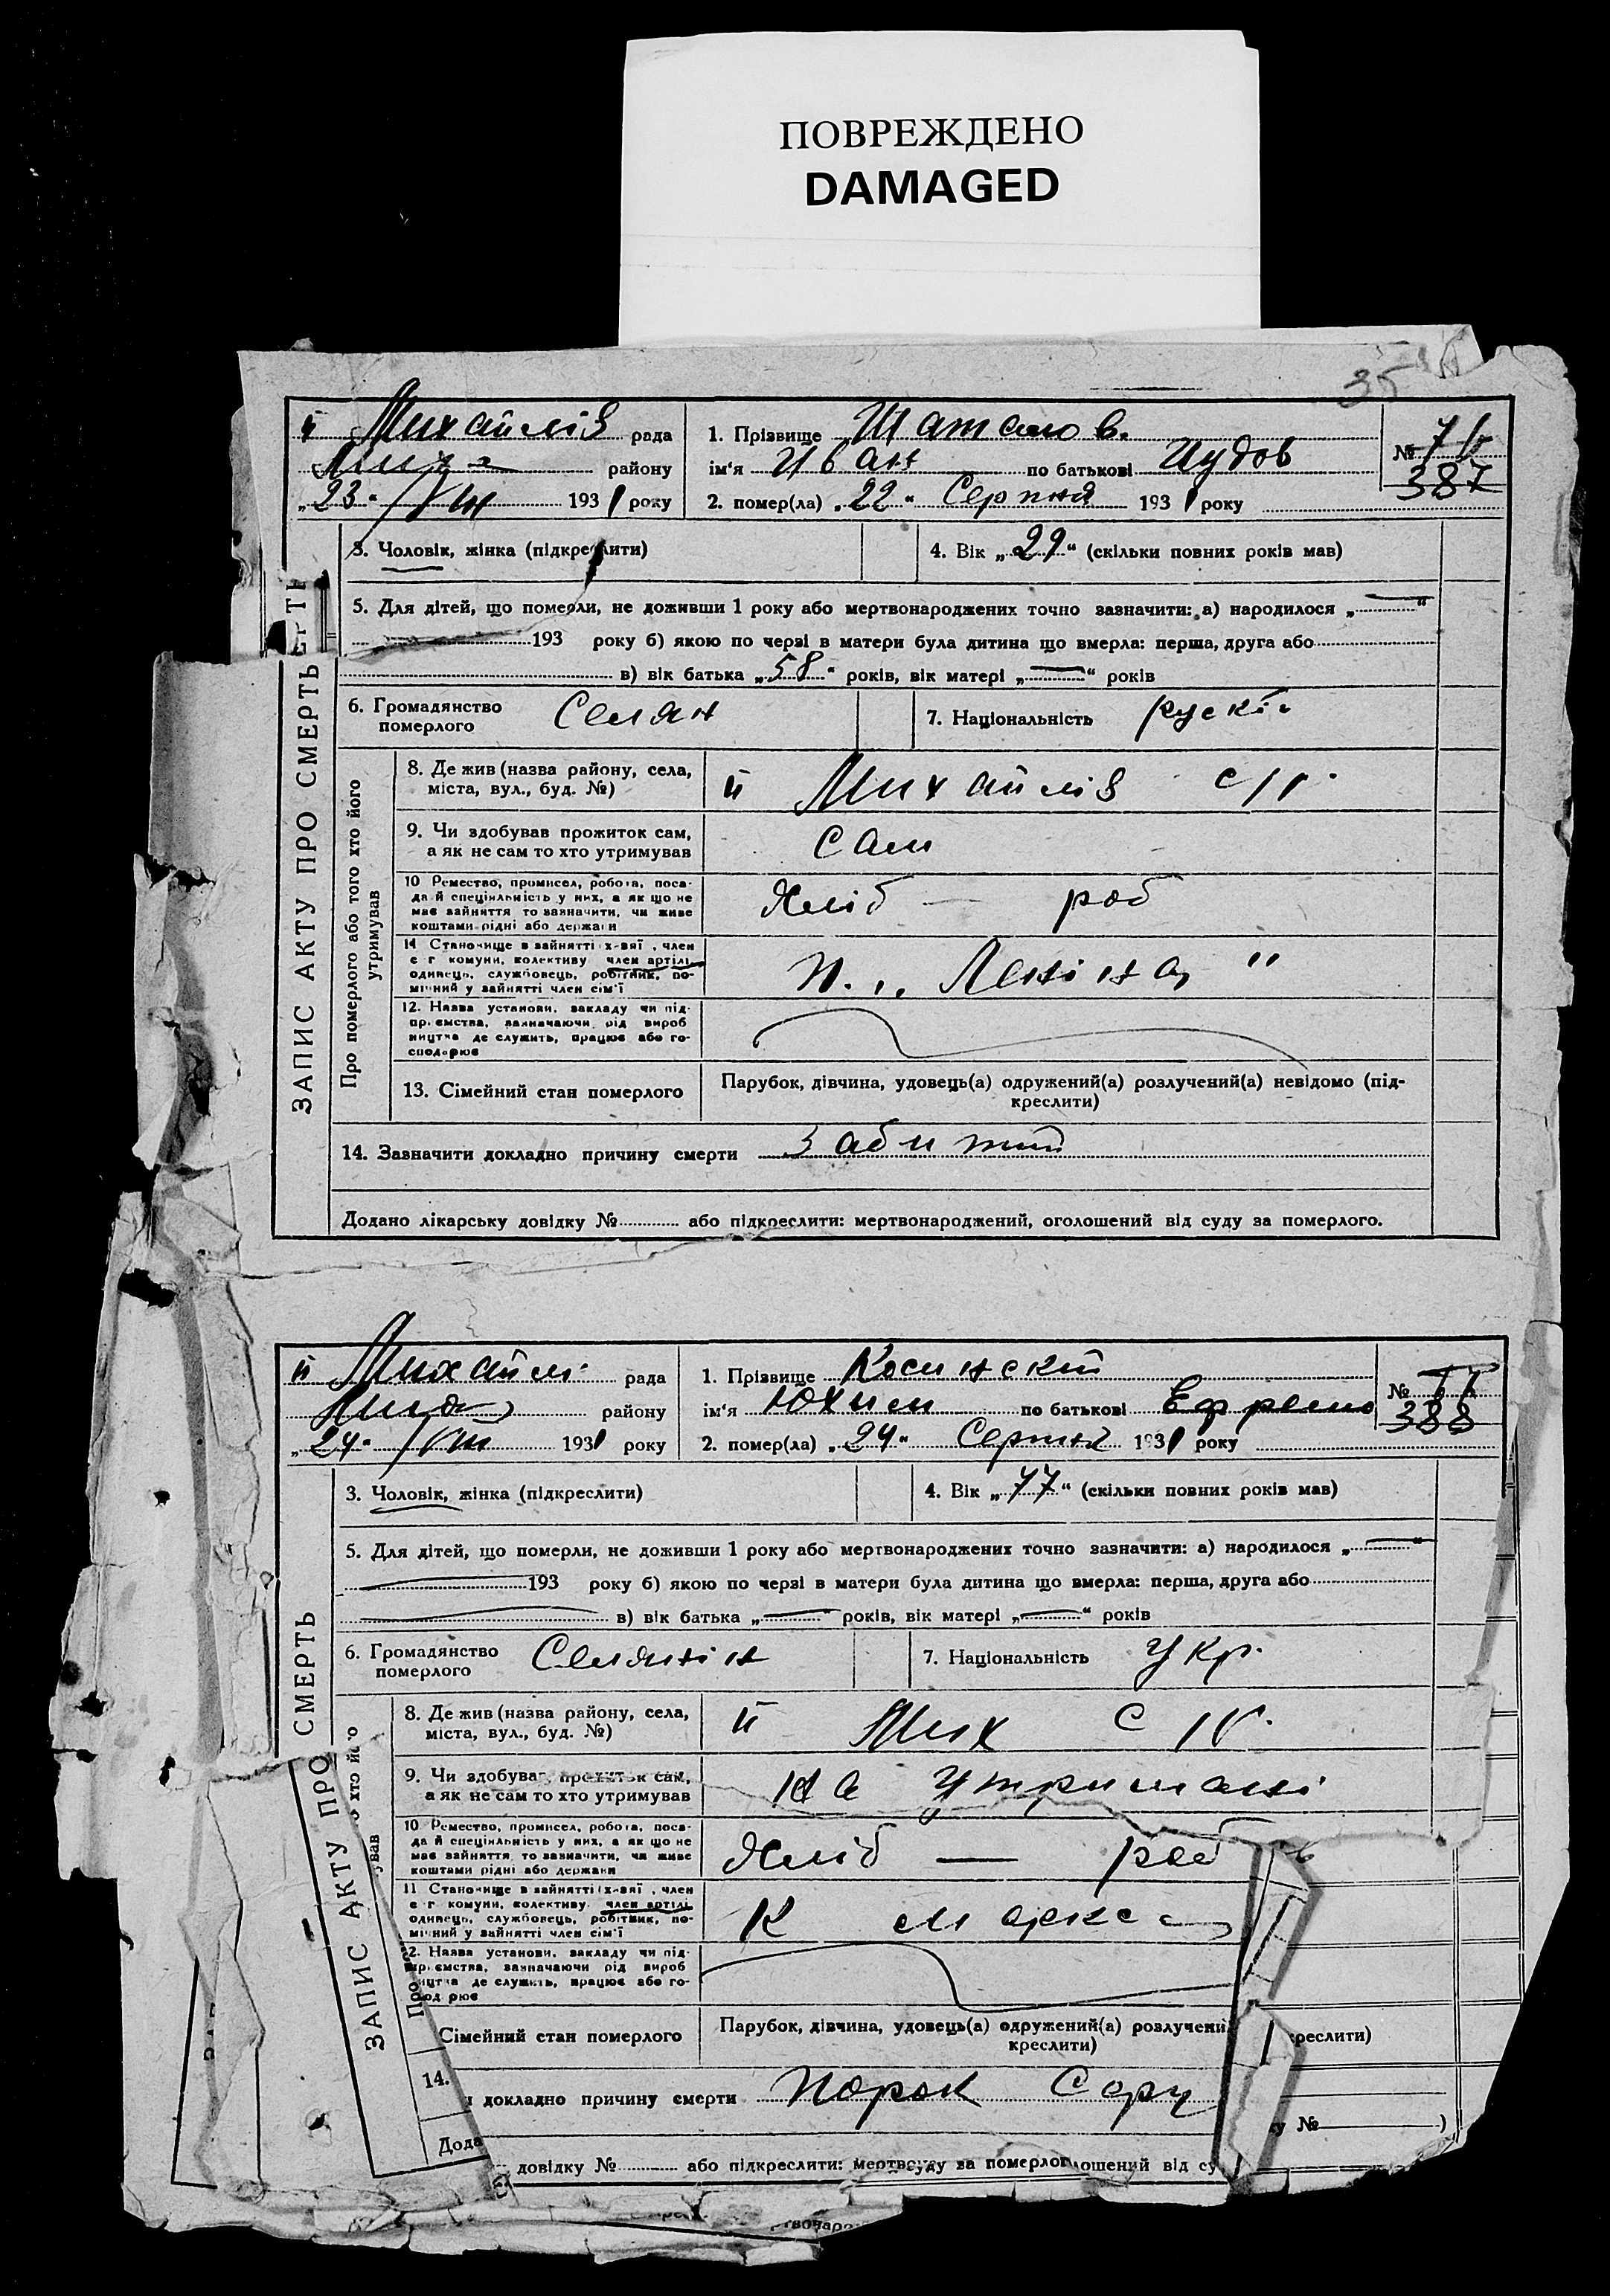 ПОВРЕЖДЕНО
DAMAGED
35
ІІ Михайлів рада
району
„23“ VIII 1931 року
1. Прізвище Шаталов.
ім'я Иван по батькові Иудов
2. помер(ла) „22“ Серпня 1931 року
№
387
ЗАПИС АКТУ ПРО СМЕРТЬ
3. Чоловік, жінка (підкреслити)
4. Вік „29“ (скільки повних років мав)
5. Для дітей, що померли, не доживши 1 року або мертвонароджених точно зазначити: а) народилося „—“
193 року б) якою по черзі в матери була дитина що вмерла: перша, друга або
в) вік батька „58“ років, вік матері „—“ років
6. Громадянство померлого Селян
7. Національність рускі
Про померлого або того хто його утримував
8. Де жив (назва району, села,
міста, вул., буд. №)
ІІ Михайлів с/г.
9. Чи здобував прожиток сам,
а як не сам то хто утримував
Сам
10 Ремество, промисел, робота, поса-
да й спеціяльність у них, а як що не
має зайняття то зазначити, чи живе
коштами рідні або держави
Хліб — роб
11 Становище в зайнятті х-вяї, член
с г комуни, колективу член артілі
одинець, службовець, робітник, по-
мічний у зайнятті член сім'ї
Леніна "
12. Назва установи, закладу чи під-
приємства, зазначаючи рід вироб
ництва де служить, працює або го-
сподарює
13. Сімейний стан померлого
Парубок, дівчина, удовець(а) одружений(а) розлучений(а) невідомо (під-
креслити)
14. Зазначити докладно причину смерти Забитий
Додано лікарську довідку № або підкреслити: мертвонароджений, оголошений від суду за померлого.
ІІ Михайлі рада
району
„24“ VIII 1931 року
1. Прізвище Косинскій
ім'я Юхим по батькові Ефремо
2. помер(ла) „24“ Серпня 1931 року
№
388
ЗАПИС АКТУ ПРО СМЕРТЬ
3. Чоловік, жінка (підкреслити)
4. Вік „77“ (скільки повних років мав)
5. Для дітей, що померли, не доживши 1 року або мертвонароджених точно зазначити: а) народилося „—“
193 року б) якою по черзі в матери була дитина що вмерла: перша, друга або
в) вік батька „—“ років, вік матері „—“ років
6. Громадянство померлого Селянін
7. Національність Укр.
8. Де жив (назва району, села,
міста, вул., буд. №)
ІІ Мих с/г.
9. Чи здобував прожиток сам,
а як не сам то хто утримував
на утримані
10 Ремество, промисел, робота, поса-
да й спеціяльність у них, а як що не
має зайняття то зазначити, чи живе
коштами рідні або держави
Хліб — роб
11 Становище в зайнятті х-вяї, член
с г комуни, колективу член артілі
одинець, службовець, робітник, по-
мічний у зайнятті член сім'ї
К маркса
2. Назва установи, закладу чи під-
приємства, зазначаючи рід вироб
ництва де служить, працює або го-
Сімейний стан померлого
Парубок, дівчина, удовець(а) одружений(а) розлучени
креслити)
реслити)
14.
докладно причину смерти Порок Серц
Дода
довідку № або підкреслити: мертв суду за померлог лошений від су
у № )
твонаро